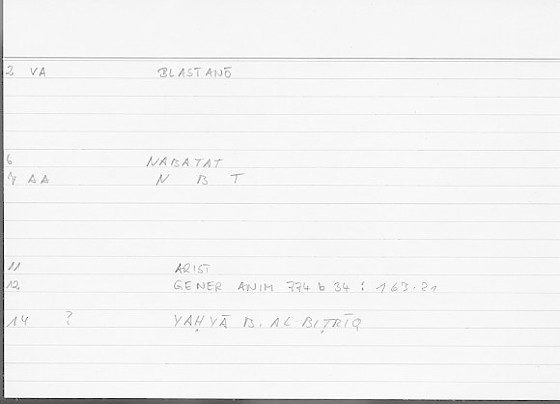 2 VA BLASTANŌ
6 NABATAT
7 AA N B T
11 ARIST
12 GENER ANIM 774 b 34 : 163.21
14 ? YAḤYĀ B. AL BIṬRĪQ